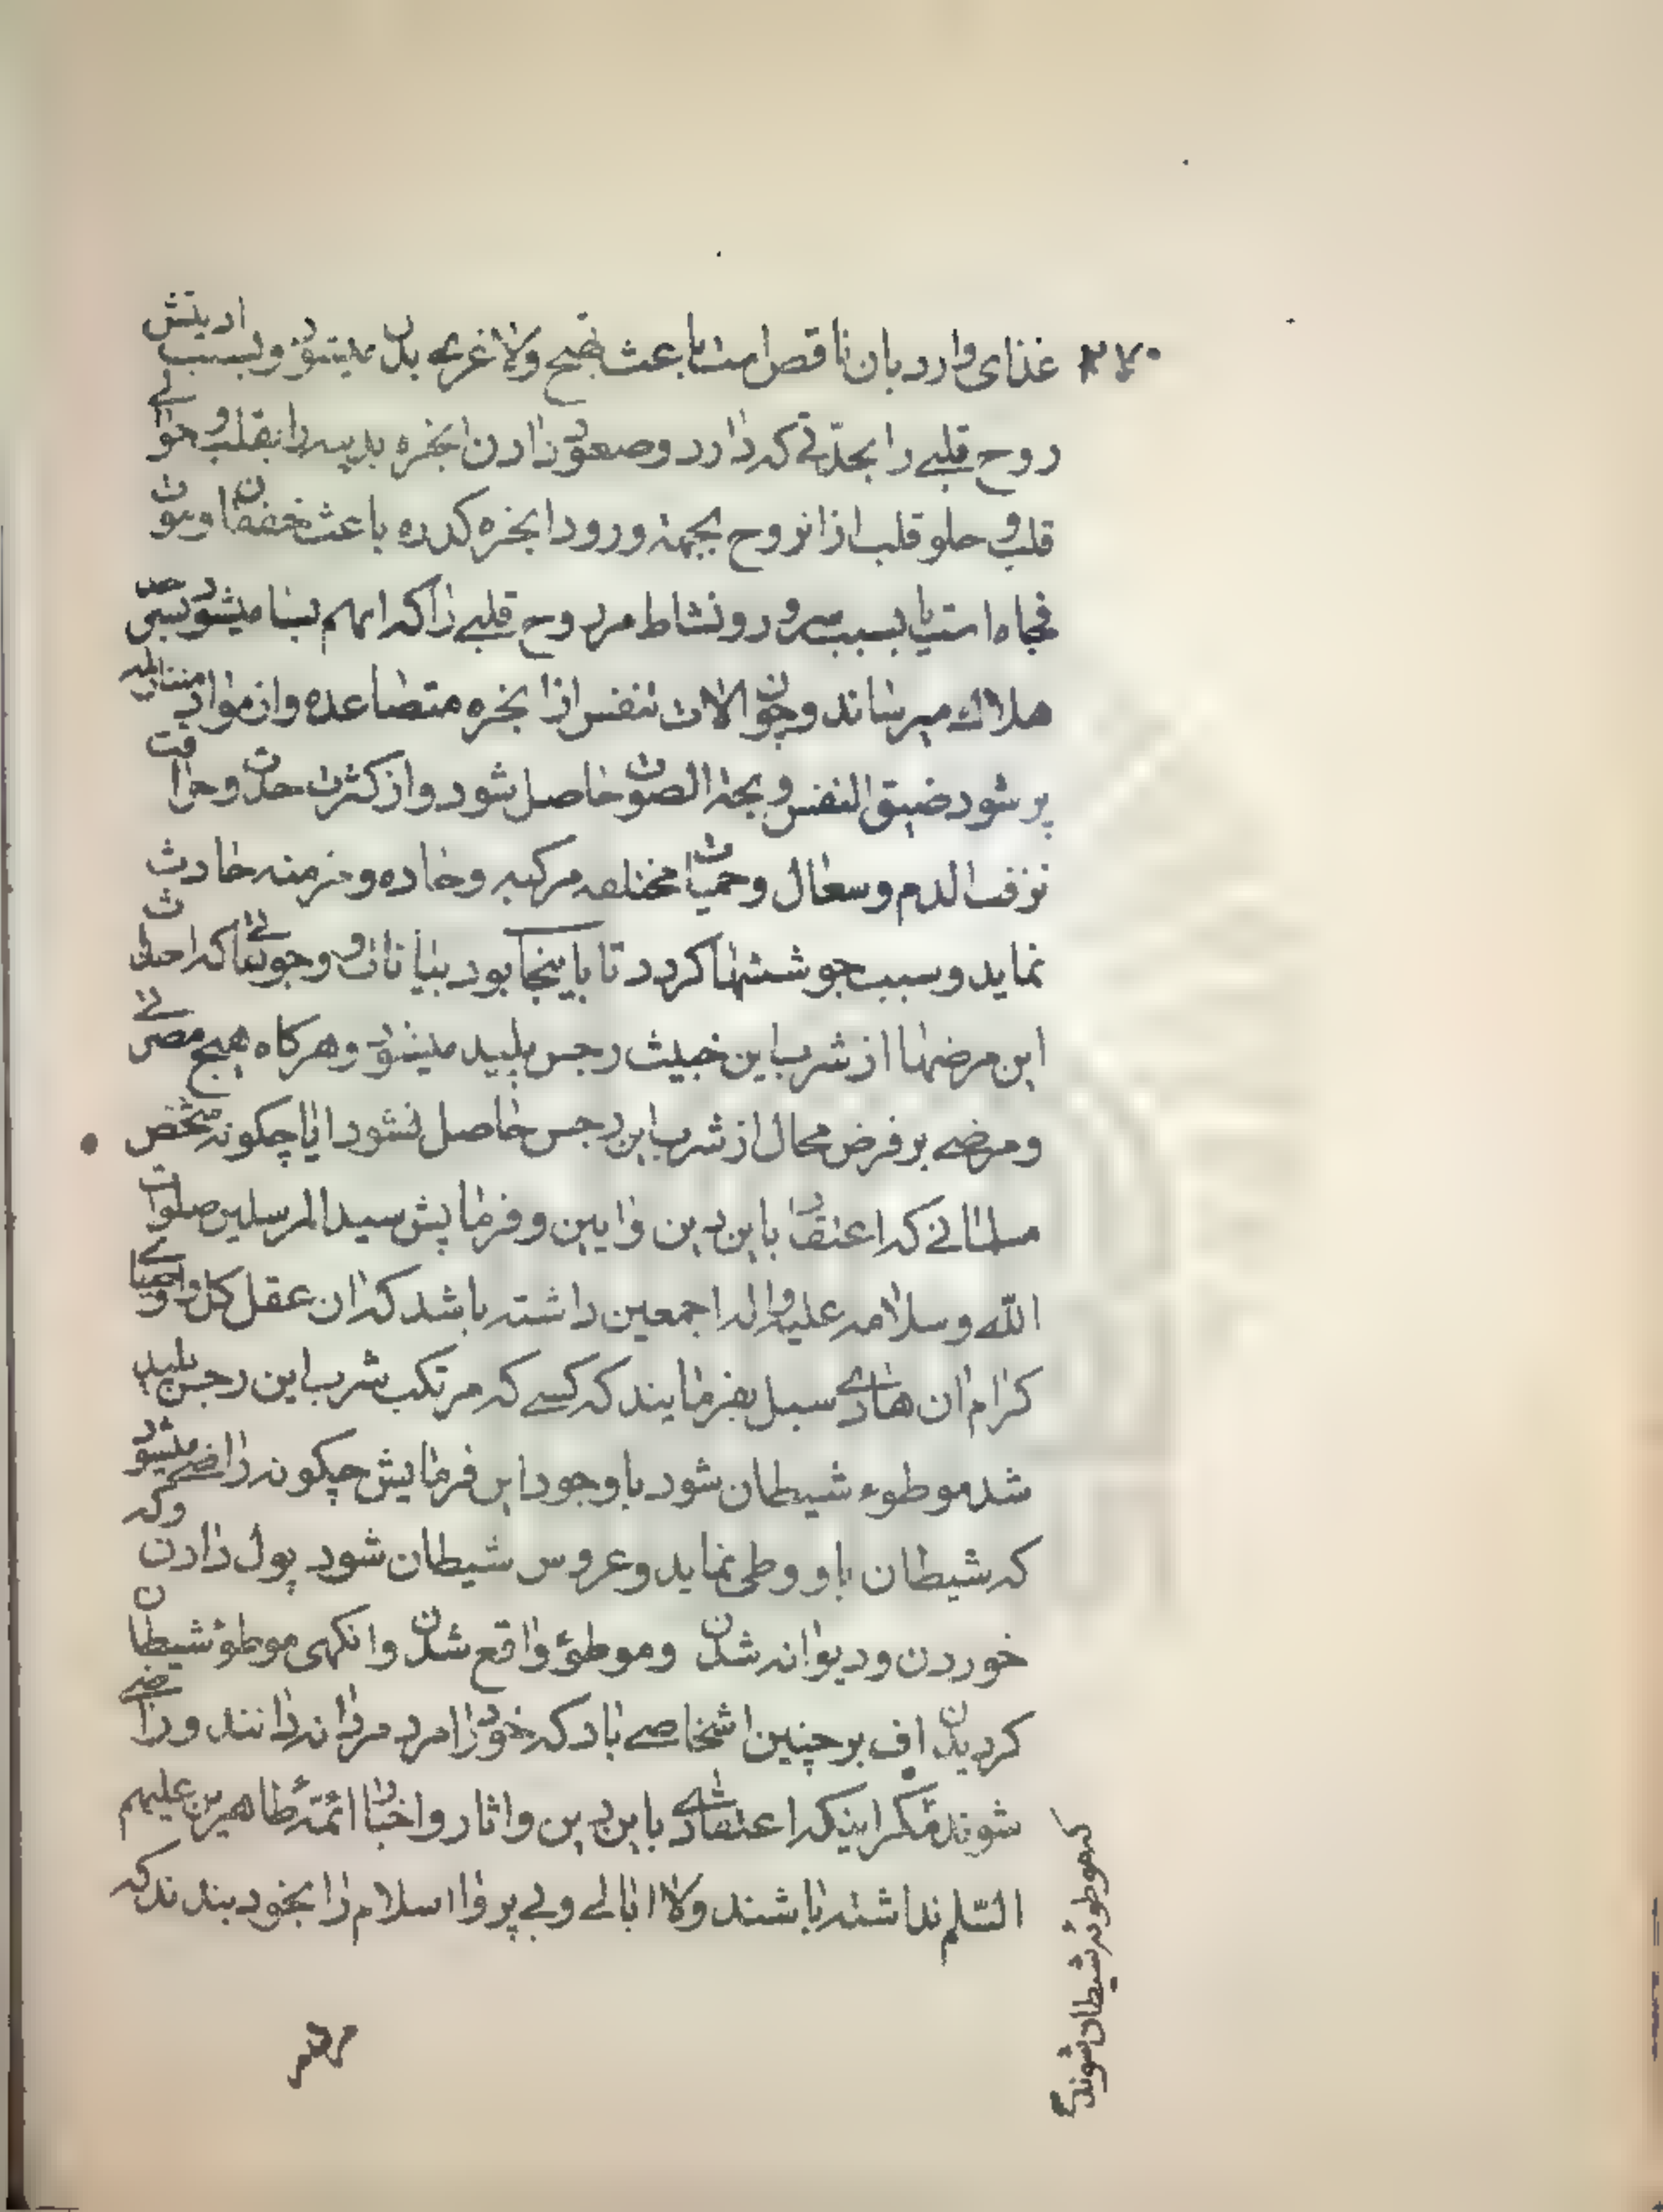 ۲۷۰
غذای وارد بان ناقص است باعث تهبج ولاغری بدن میشود وبسبب اذیتش
روح قلبی را بحدّتی که دارد وصعود دادن ابخره ردیه را بقلب و حوالی
قلب و خلو قلب از انروح بجهة ورود ابخره کدره باعث خفقان وموت
فجاه است یا بسبب سرور ونشاط مر روح قلبی را که انهم بسا میشود بحدی
هلاك میرساند وچون الات تنفس از ابخره متصاعده وان مواد
پر شود ضیق النفس و بحة الصوت حاصل شود واز کثرت حدت وحرافت
نزف الدم وسعال وحمیات مختلفه مرکبه وحاده ومزمنه حادث
نماید وسبب جوششها کردد تا باینجا بود بیانات و که احداث
این مرضها از شرب این خبیث رجس پلید میشود وهرکاه هیچ مضرتی
ومرضی بر فرض محال از شرب این رجس حاصل نشود ایا چکونه شخص
مسلمانی که اعتقاد باین دین وایین وفرمایش سید المرسلین صلوات
الله وسلامه علیه واله اجمعین داشته باشد که ان عقل کل واوصیای
کرام ان هادی سبل بفرمایند که کسی که مرتکب شرب این رجس پلید
شد موطوء شیطان شود باوجود این فرمایش چکونه راضی میشود
که شیطان باو وطی نماید وعروس شیطان شود پول دادن وکه
خوردن ودیوانه شدن وموطؤ واقع شدن وانکهی موطؤ شیطان
کردیدن اف بر چنین اشخاصی باد که خود را مرد مردانه دانند وراضی
شوند مکر اینکه اعتقادی باین دین واثار واخبار ائمّهٔ طاهرین علیهم
السّلم نداشته باشند ولا ابالی وبی پروا اسلام را بخود بندند که
که موطوئه شیطان شوند